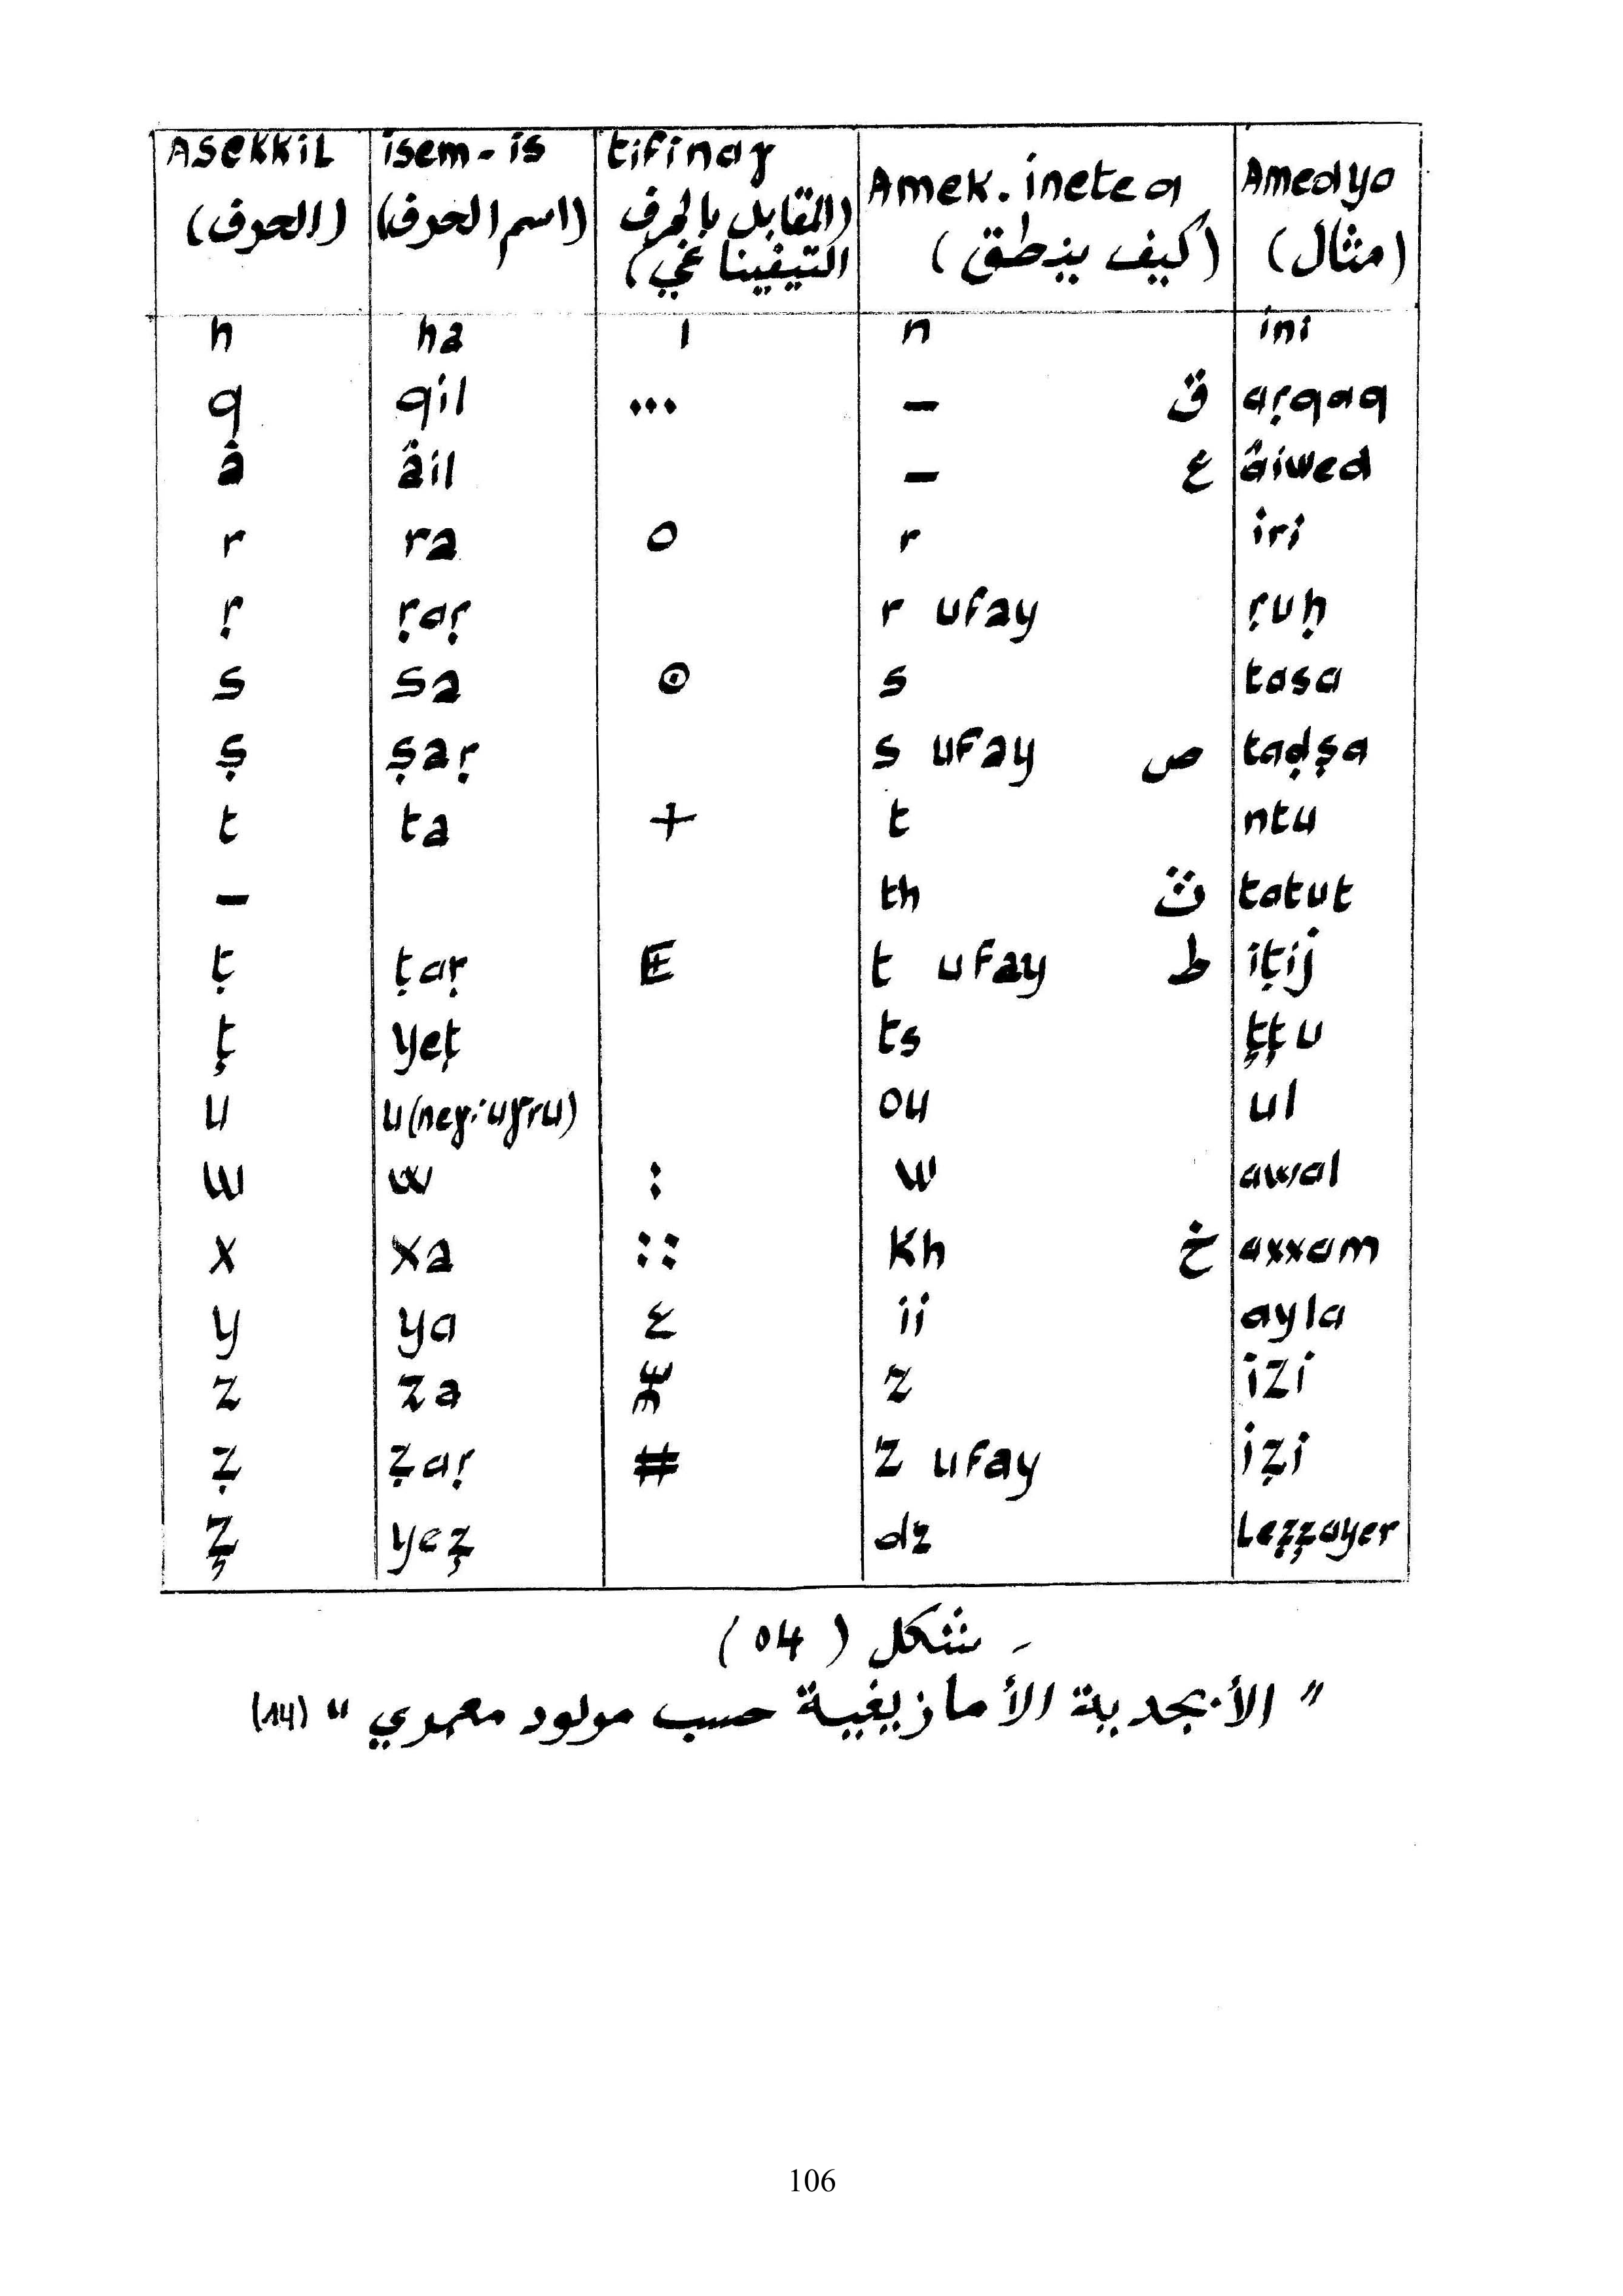 Asekkil isem-is tifinaɣ Amek.ineteq Amedya
(الحرف) (اسم الحرف) (المقابل بالحرف التيفيناغي) (كيف ينطق) (مثال)
n na ı n ini
q qil ••• – ق aṛqaq
â âil – ع âiwed
r ra O r iri
ṛ ṛaṛ r ufay ṛuḥ
s sa ⊙ s tasa
ṣ ṣaṛ s ufay ص taḍṣa
t ta + t ntu
– th ث tatut
ṭ ṭaṛ E t ufay ط iṭij
ţ yeţ ts ţţu
u u (neɣ: uɣru) ou ul
w w : w awal
x xa :: kh خ axxam
y ya ⵉ ii ayla
z za ⵣ z izi
ẓ ẓaṛ # z ufay iẓi
z̧ yez̧ dz Lez̧z̧ayer
- شكل (04)
" الأبجدية الأمازيغية حسب مولود معمري " (14)
106